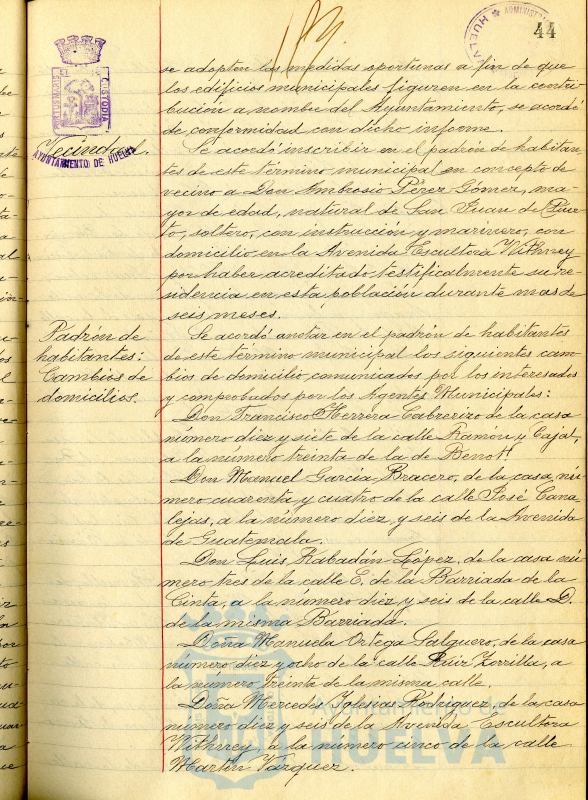 44
ADMINISTR
HUELVA
se adopten las medidas oportunas a fin de que
los edificios municipales figuren en la contri-
bución a nombre del Ayuntamiento, se acordó
de conformidad con dicho informe.
CUSTODIA
Vecindad.
AYUNTAMIENTO DE HUELVA
Se acordó inscribir en el padrón de habitan-
tes de este término municipal en concepto de
vecino a Don Ambrosio Pérez Gómez, ma-
yor de edad, natural de San Juan de Puer-
to, soltero, con instrucción y marinero, con
domicilio en la Avenida Escultora Withney
por haber acreditado testificalmente su re-
sidencia en esta población durante mas de
seis meses.
Padrón de
habitantes:
Cambios de
domicilios.
Se acordó anotar en el padrón de habitantes
de este término municipal los siguientes cam-
bios de domicilio comunicados por los interesados
y comprobados por los Agentes Municipales:
Don Francisco Herrera Cabrerizo de la casa
número diez y siete de la calle Ramón y Cajal,
a la número treinta de la de Benot.
Don Manuel García Bracero, de la casa nú-
mero cuarenta y cuatro de la calle José Cana-
lejas, a la número diez y seis de la Avenida
de Guatemala.
Don Luis Rabadán López, de la casa nú-
mero tres de la calle C. de la Barriada de la
Cinta, a la número diez y seis de la calle D.
de la misma Barriada.
Doña Manuela Ortega Salguero, de la casa
número diez y ocho de la calle Ruiz Zorrilla, a
la número treinta de la misma calle.
Doña Mercedes Iglesias Rodriguez, de la casa
número diez y seis de la Avenida Escultora
Withney, a la número cinco de la calle
Martín Vázquez.
Ayuntamiento de
HUELVA